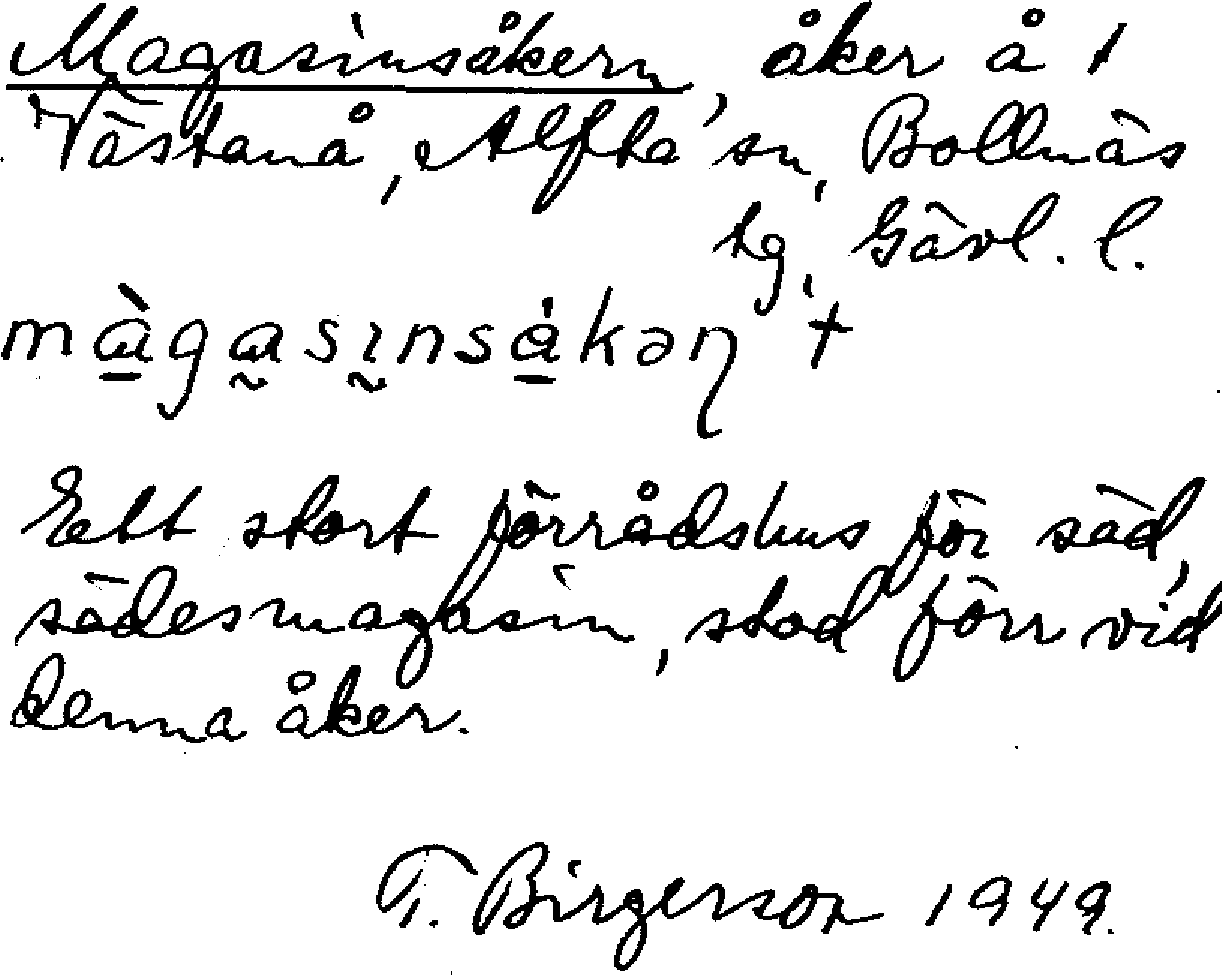 Magasinsåkern, åker å 1
Västanå, Alfta sn, Bollnäs
tg, Gävl. l.
màgasınsåkəη +
Ett stort förrådshus för säd,
sädesmagasin, stod förr vid
denna åker.
T. Birgerson 1949.